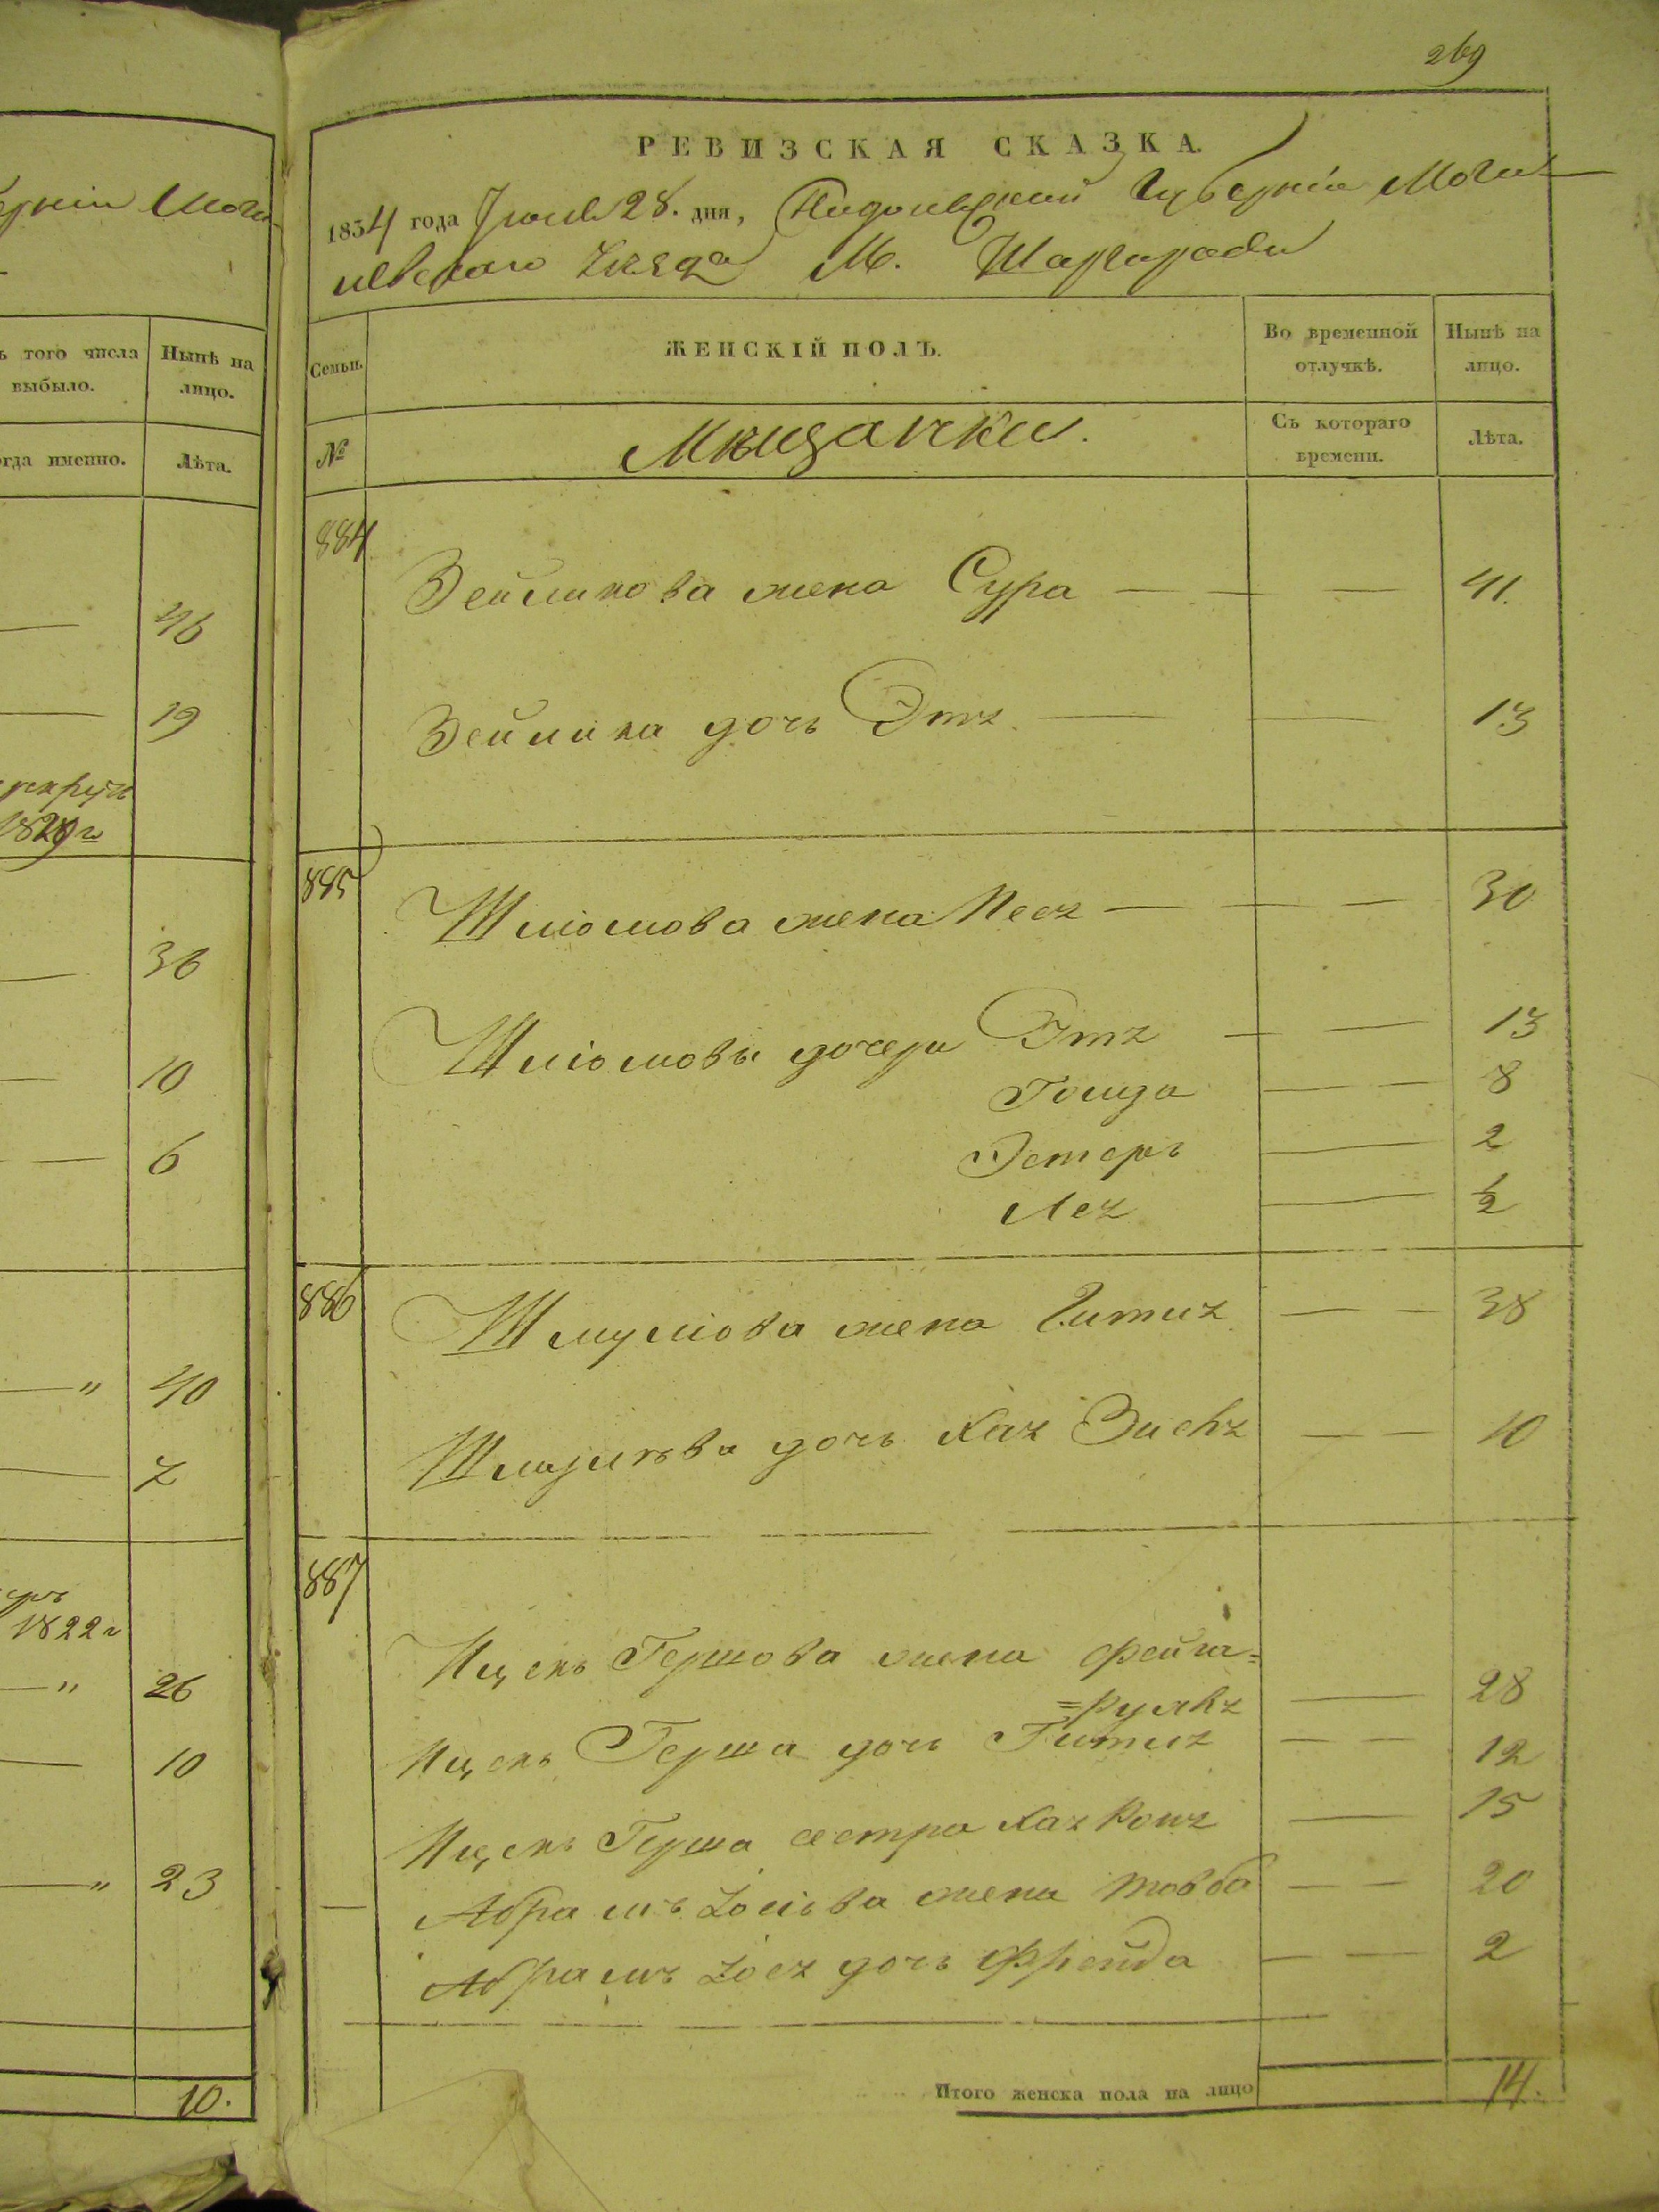 269
ернiи Моги
РЕВИЗСКАЯ СКАЗКА.
1854 года Iюня 28. дня, Подольской Губернiи Моги-
левскаго Уезда М. Шаргорода
ъ того числа выбыло.
Нынѣ на лицо.
огда именно.
Лѣта.
46
19
1829 г
36
10
6
" 40
7
1822 г
" 26
10
" 23
10.
Семьи.
ЖЕНСКIЙ ПОЛЪ.
Во временной отлучкѣ.
Нынѣ на лицо.
№
Мѣщанки.
Съ котораго времени.
Лѣта.
884
Зейликова жена Сура — — — 41.
Зейлика дочь Этя — — 13
885
Шлiомова жена Песя — — — 30
Шлiомовы дочери Этя — — 13
Голда — — 8
Эстеръ — 2
Лея — ½
886
Шмулiова жена Гитля — — 38
Шмулева дочь Хая — — 10
887
Ицекъ Гершова жена Фейга=
=Рухля — 28
Ицекъ Герша дочь Гитля — — 12
Ицекъ Герша сестра Хая Ройзя — 15
— Абрамъ жена Товба — — 20
Абрамъ дочь Фрейда — — 2
Итого женска пола на лицо 14.